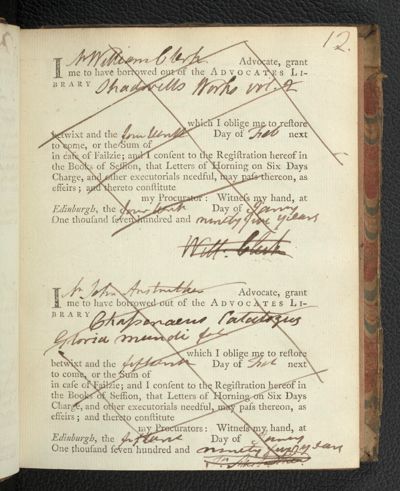 12.
I Mr William Clerk Advocate, grant
me to have borrowed out of the ADVOCATES LI-
BRARY Shadwells Works vol. 2
which I oblige me to reſtore
betwixt and the fourteenth Day of Feb next
to come, or the Sum of
in caſe of Failzie; and I conſent to the Regiſtration hereof in
the Books of Seſſion, that Letters of Horning on Six Days
Charge, and other executorials needful, may paſs thereon, as
effeirs; and thereto conſtitute
my Procurators: Witneſs my hand, at
Edinburgh, the fourteenth Day of Janry
One thouſand ſeven hundred and ninety five years
Will: Clerk
I Mr John Anstruther Advocate, grant
me to have borrowed out of the ADVOCATES LI-
BRARY Chassanaeus Catalogus
Gloria mundi
which I oblige me to reſtore
betwixt and the fifteenth Day of Feb next
to come, or the Sum of
in caſe of Failzie; and I conſent to the Regiſtration hereof in
the Books of Seſſion, that Letters of Horning on Six Days
Charge, and other executorials needful, may paſs thereon, as
effeirs; and thereto conſtitute
my Procurators: Witneſs my hand, at
Edinburgh, the fifteenth Day of Janry
One thouſand ſeven hundred and ninety five years